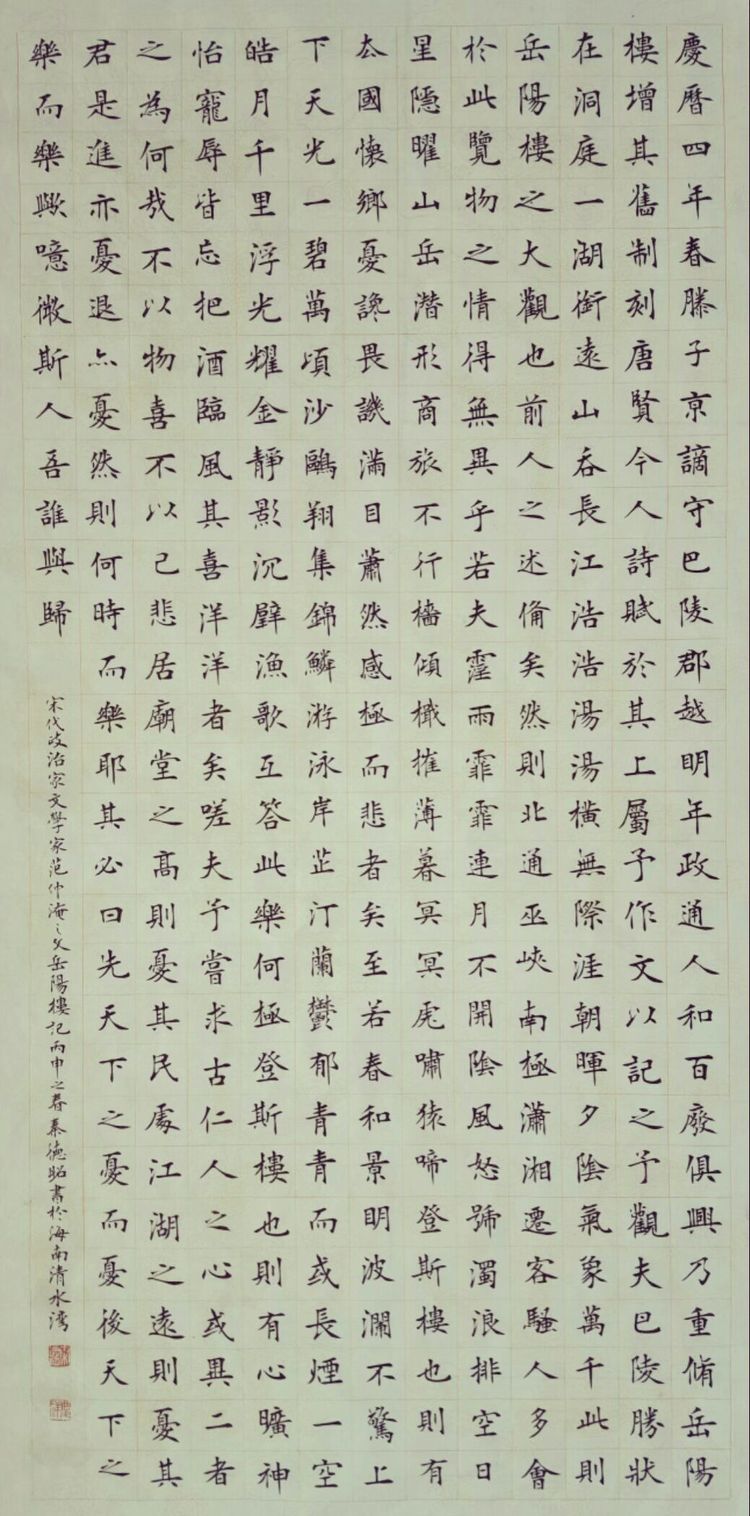 慶曆四年春滕子京謫守巴陵郡越明年政通人和百廢俱興乃重脩岳陽
樓增其舊制刻唐賢今人詩賦於其上屬予作文以記之予觀夫巴陵勝狀
在洞庭一湖銜遠山吞長江浩浩湯湯橫無際涯朝暉夕陰氣象萬千此則
岳陽樓之大觀也前人之述俻矣然則北通巫峽南極瀟湘遷客騷人多會
於此覽物之情得無異乎若夫霪雨霏霏連月不開陰風怒號濁浪排空日
星隱曜山岳潛形商旅不行檣傾檝摧薄暮冥冥虎嘯猿啼登斯樓也則有
去國懷鄉憂讒畏譏滿目蕭然感極而悲者矣至若春和景明波瀾不驚上
下天光一碧萬頃沙鷗翔集錦鱗游泳岸芷汀蘭鬱郁青青而或長煙一空
皓月千里浮光耀金靜影沉璧漁歌互答此樂何極登斯樓也則有心曠神
怡寵辱皆忘把酒臨風其喜洋洋者矣嗟夫予嘗求古仁人之心或異二者
之為何哉不以物喜不以己悲居廟堂之高則憂其民處江湖之遠則憂其
君是進亦憂退亦憂然則何時而樂耶其必曰先天下之憂而憂後天下之
樂而樂歟噫微斯人吾誰與歸
宋代政治家文學家范仲淹之文岳陽樓記丙申之春秦德昭書於海南清水湾